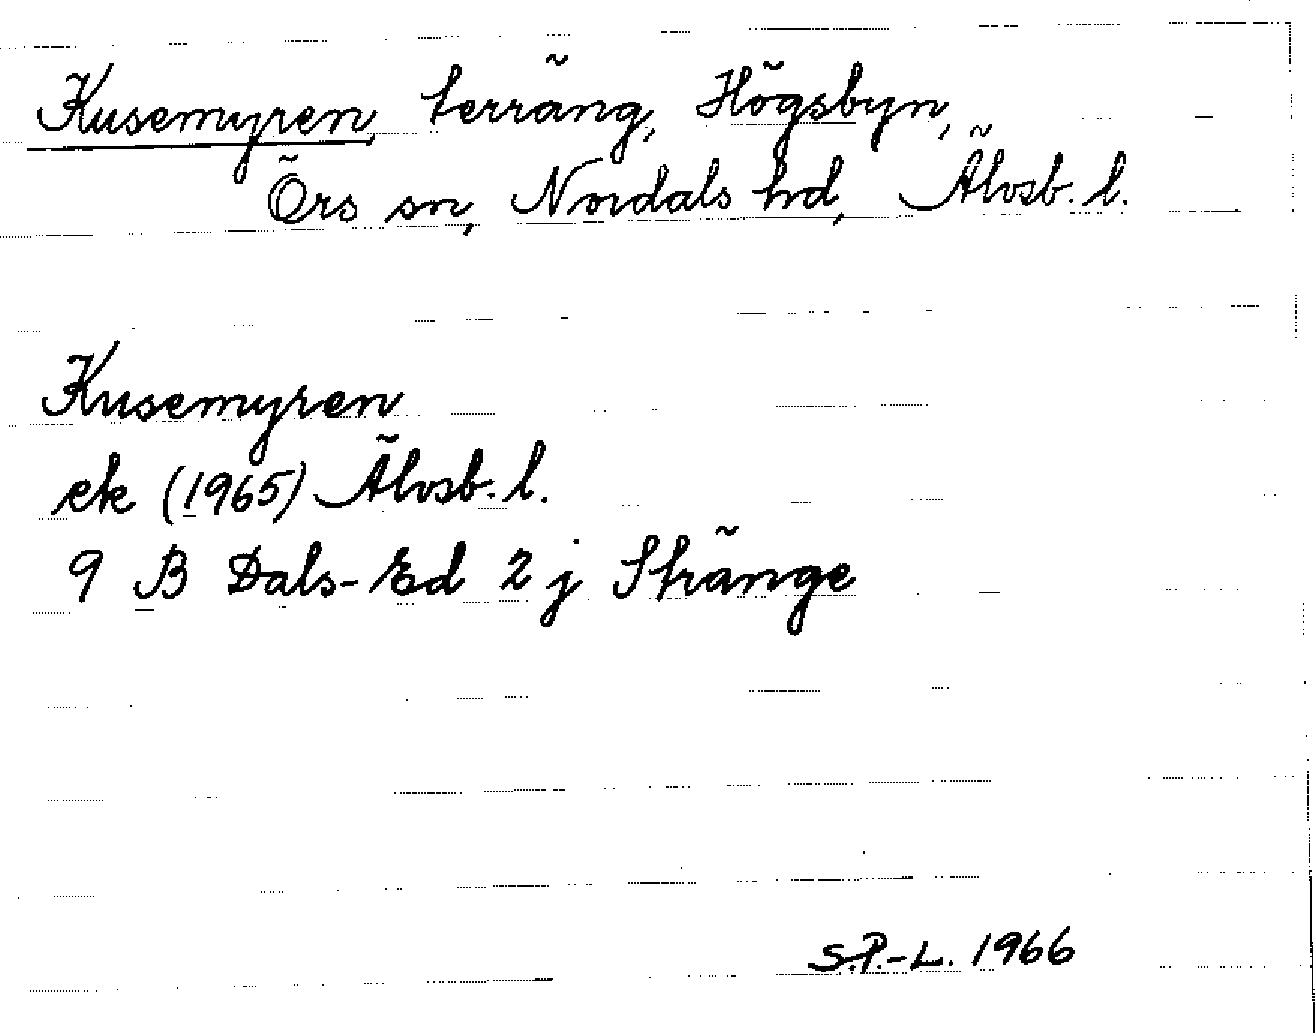 Kusemyren, terräng, Högsbyn,
Örs sn, Nordals hd, Älvsb. l.
Kusemyren
ek (1965) Älvsb. l.
9 B Dals-Ed 2 j Stränge
S.P.-L. 1966